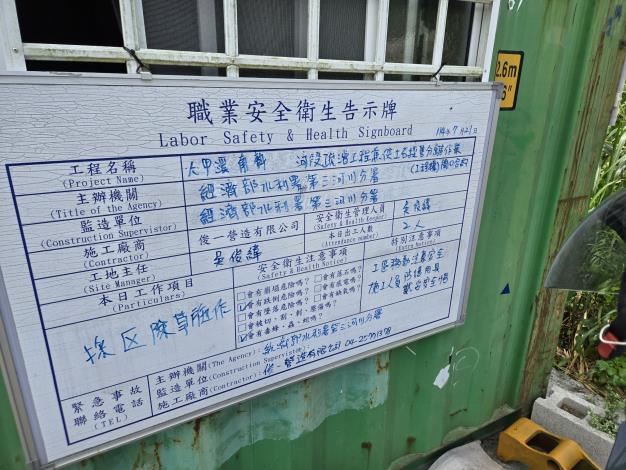 職業安全衛生告示牌
Labor Safety & Health Signboard
114年7月21日
工程名稱
(Project Name)
大甲溪
河段疏濬工程兼供土石採售分離作業
(工程標) 開口合約
主辦機關
(Title of the Agency)
經濟部水利署第三河川分署
監造單位
(Construction Supervisor)
經濟部水利署第三河川分署
施工廠商
(Contractor)
俊一營造有限公司
安全衛生管理人員
(Safety & Health Keeper)
吳俊緯
工地主任
(Site Manager)
吳俊緯
本日出工人數
(Attendance number)
2人
本日工作項目
(Particulars)
採區除草雜作
安全衛生注意事項
(Safety & Health Notice)
會有崩塌危險嗎？
會有落石嗎？
會有跌倒危險嗎？
會有感電嗎？
會有墜落危險嗎？
會有缺氧嗎？
會被切、割、刺、壓傷嗎？
會有毒蜂、蟲、蛇嗎？
特別注意事項
(Extra Notice)
工區務動注意安全
施工人員 防護用具
戴安全帽
緊急事故
聯絡電話
(TEL)
主辦機關(The Agency):
經濟部水利署第三河川分署
監造單位(Construction Supervisor):
施工廠商(Contractor):
俊一營造有限公司 04-25791378
2.6m